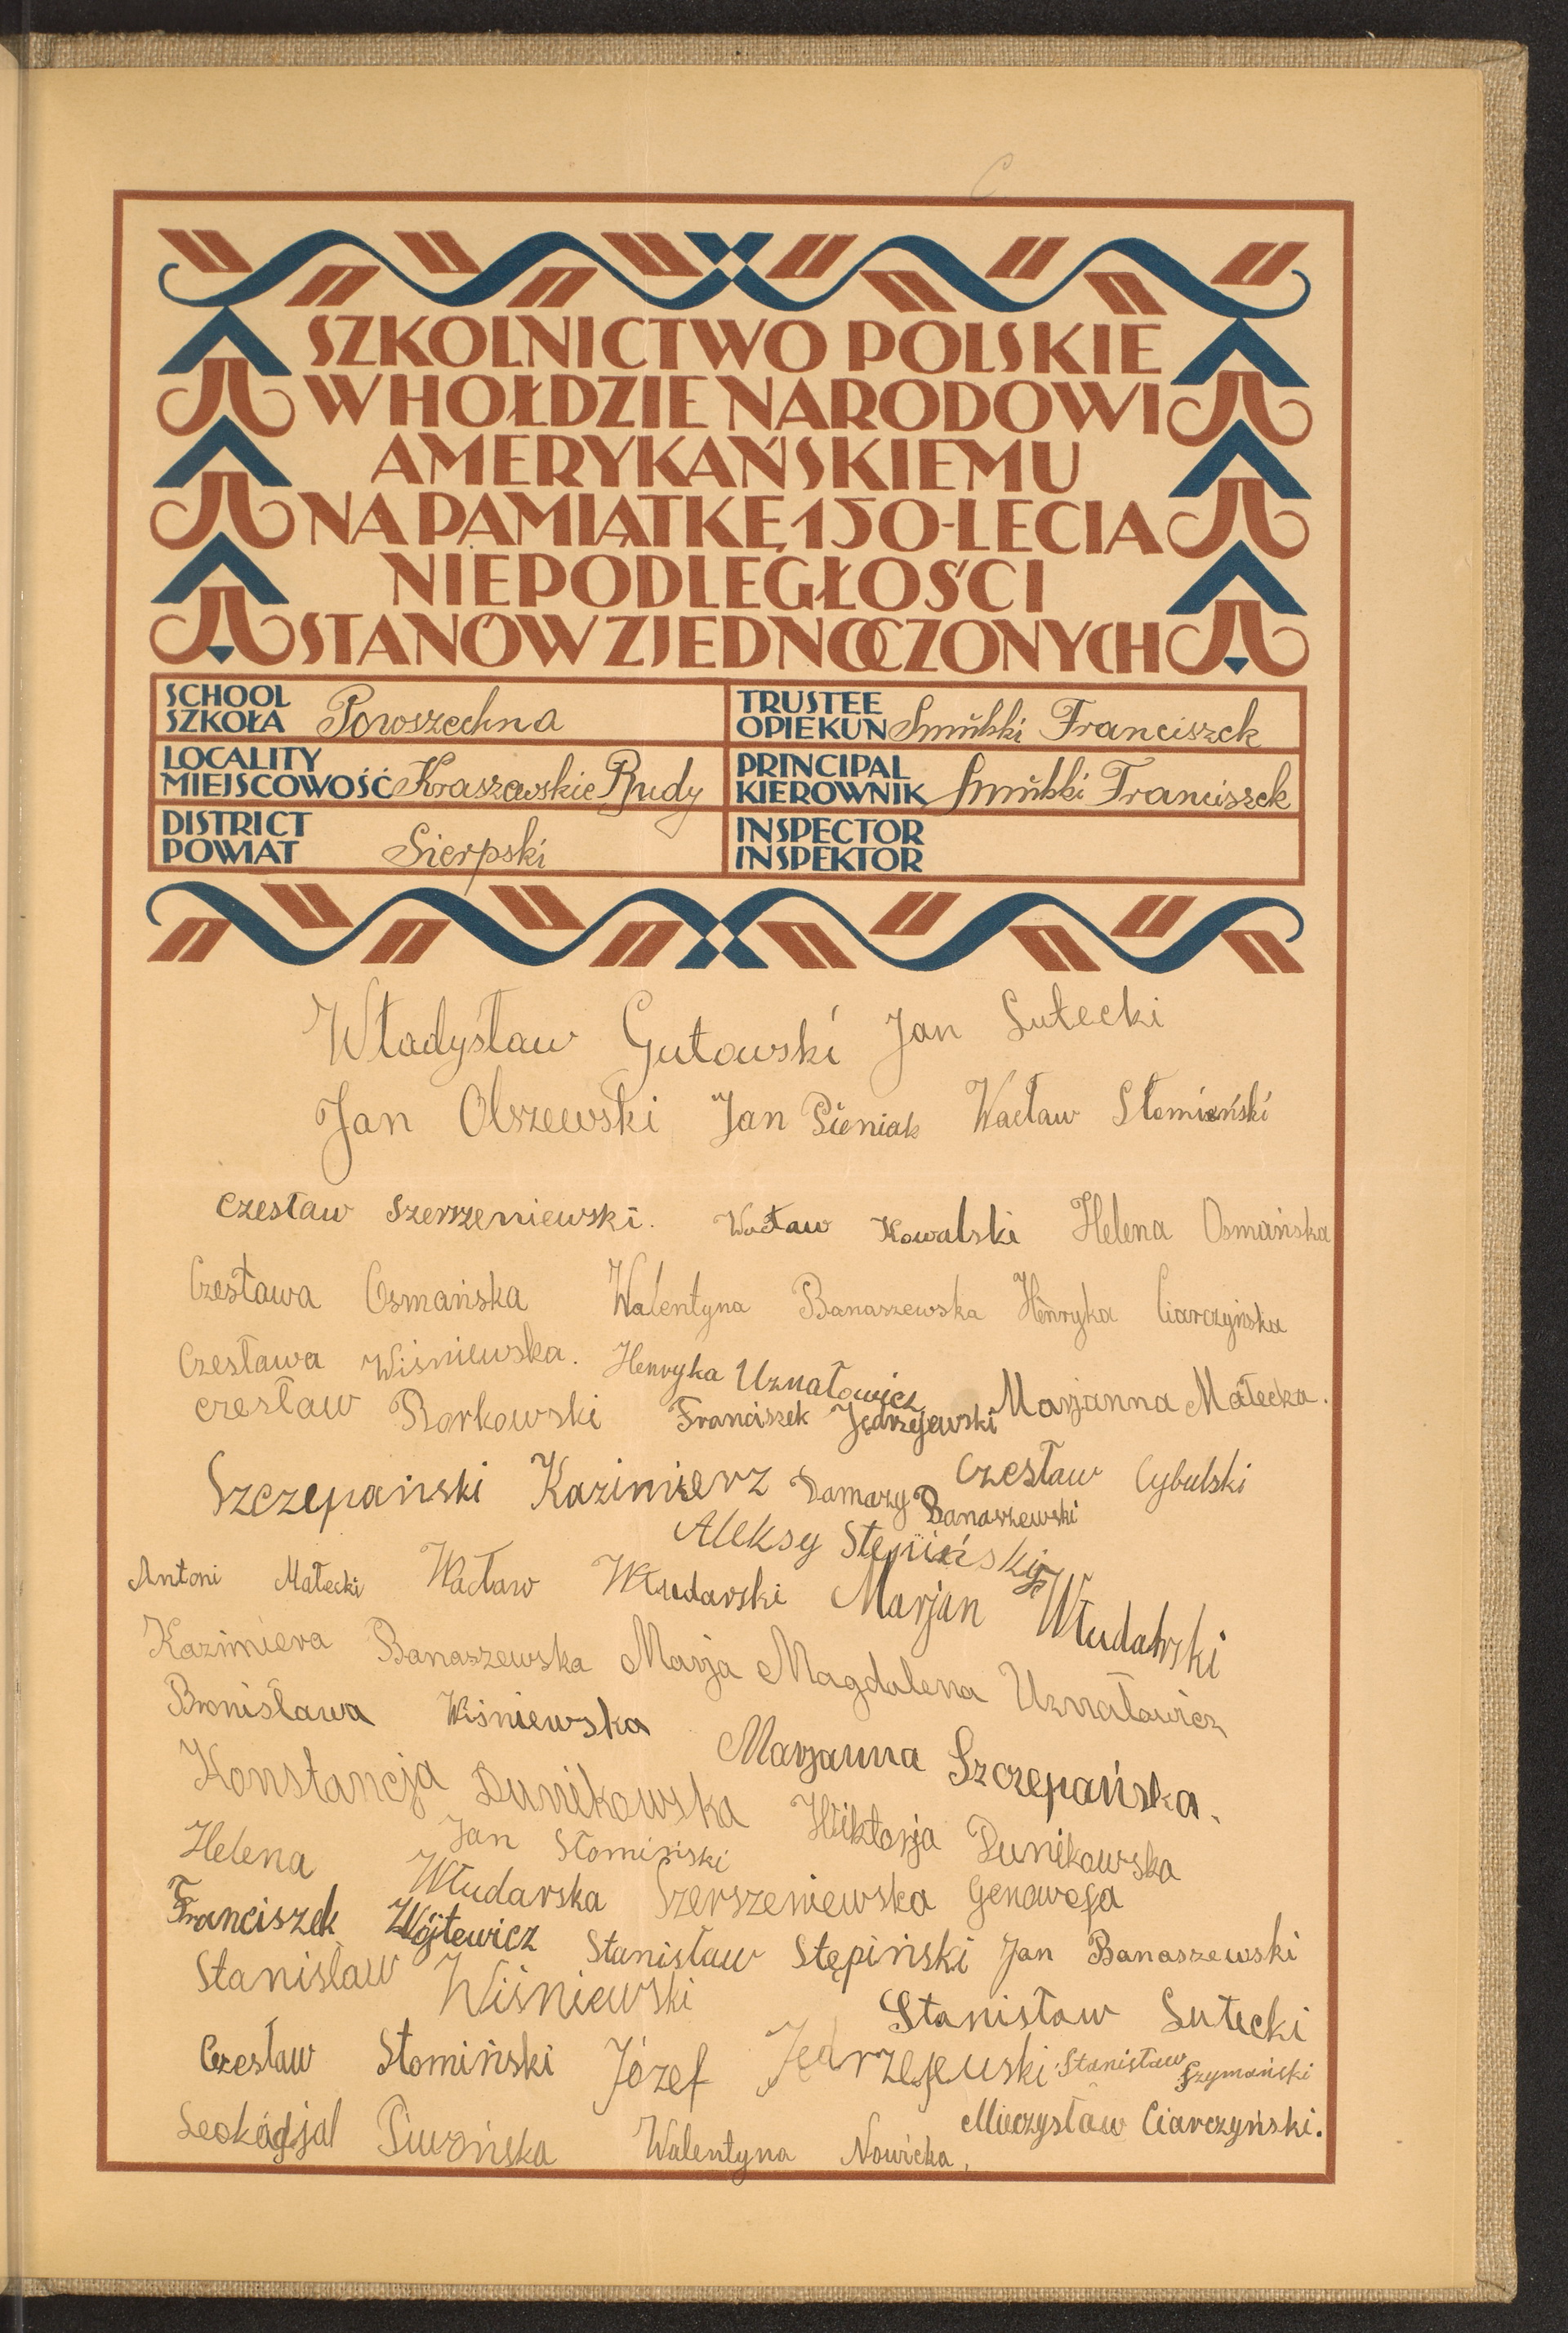 SZKOLNICTWO POLSKIE
W HOŁDZIE NARODOWI
AMERYKAŃSKIEMU
NA PAMIĄTKĘ 150-LECIA
NIEPODLEGŁOŚCI
STANÓW ZJEDNOCZONYCH
SCHOOL
SZKOŁA Powszechna
TRUSTEE
OPIEKUN Franciszek
LOCALITY
MIEJSCOWOŚĆ Kraszewskie Rudy
PRINCIPAL
KIEROWNIK Franciszek
DISTRICT
POWIAT Sierpski
INSPECTOR
INSPEKTOR
Władysław Gutowski Jan Lutecki
Jan Olszewski Jan Pieniak Wacław Słomiański
Czesław Szerszeniewski. Wacław Kowalski Helena Osmańska
Czesława Osmańska Walentyna Banaszewska Henryka Ciarczyńska
Czesława Wiśniewska. Henryka Uznatowicz Marjanna Małecka.
Czesław Borkowski Franciszek Jędrzejewski
Szczepański Kazimierz Damazy Banaszewski Czesław Cybulski
Aleksy Stępiński
Antoni Małecki Wacław Włudarski Marjan Włudarski
Kazimiera Banaszewska Marja Magdalena Uznatowicz
Bronisława Wiśniewska Marjanna Szczepańska.
Konstancja Dunikowska Wiktorja Dunikowska
Jan Słomiński
Helena Włudarska Szerszeniewska Genowefa
Franciszek Wójtewicz Stanisław Stępiński Jan Banaszewski
Stanisław Wiśniewski Stanisław Lutecki
Czesław Słomiński Józef Jędrzejewski Stanisław Szymański
Mieczysław Ciarczyński.
Leokadja Piwońska Walentyna Nowicka,